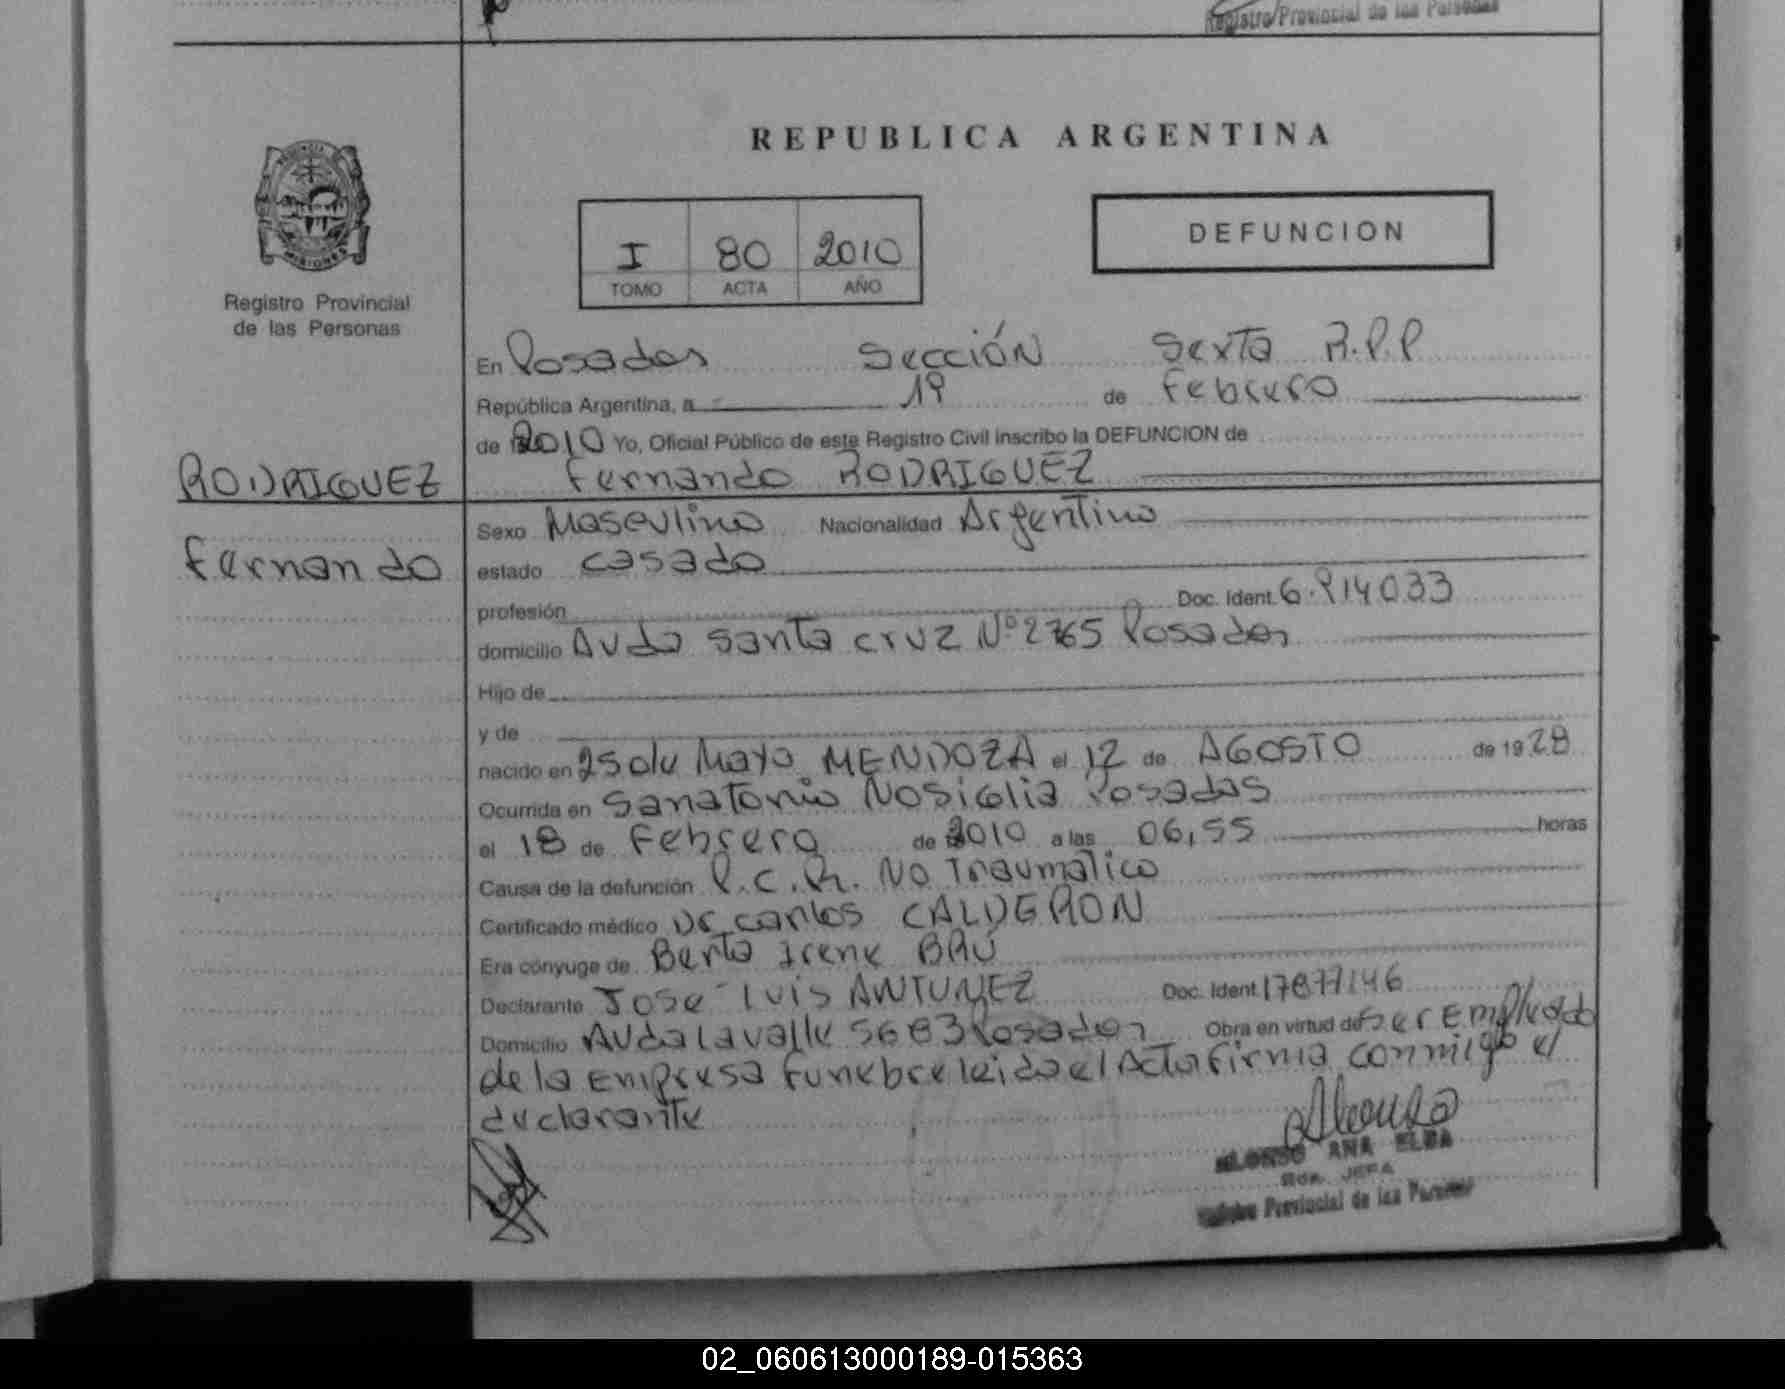 Registro Provincial de las Personas
REPUBLICA ARGENTINA
PROVINCIA DE
MISIONES
I 80 2010
TOMO ACTA AÑO
DEFUNCION
Registro Provincial
de las Personas
En Posadas Sección Sexta R.P.P
República Argentina, a 19 de Febrero
de 2010 Yo, Oficial Público de este Registro Civil inscribo la DEFUNCION de
RODRIGUEZ
Fernando RODRIGUEZ
Fernando
Sexo Masculino Nacionalidad Argentino
estado casado
profesión Doc. Ident. 6.914033
domicilio Avda Santa cruz Nº 2765 Posadas
Hijo de
y de
nacido en 25 de Mayo MENDOZA el 12 de AGOSTO de 1928
Ocurrida en Sanatorio Nosiglia Posadas
el 18 de Febrero de 2010 a las 06,55 horas
Causa de la defunción P.C.R. No Traumatico
Certificado médico Dr carlos CALDERON
Era cónyuge de Berta Irene BAÚ
Declarante Jose Luis ANTUNEZ Doc. Ident. 17877146
Domicilio Avda Lavalle 5683 Posadas Obra en virtud de Ser Empleado
de la Empresa Funebre leida el Acta firma conmigo el
declarante
ALONSO ANA ELBA
JEFA
Registro Provincial de las Personas
02_060613000189-015363